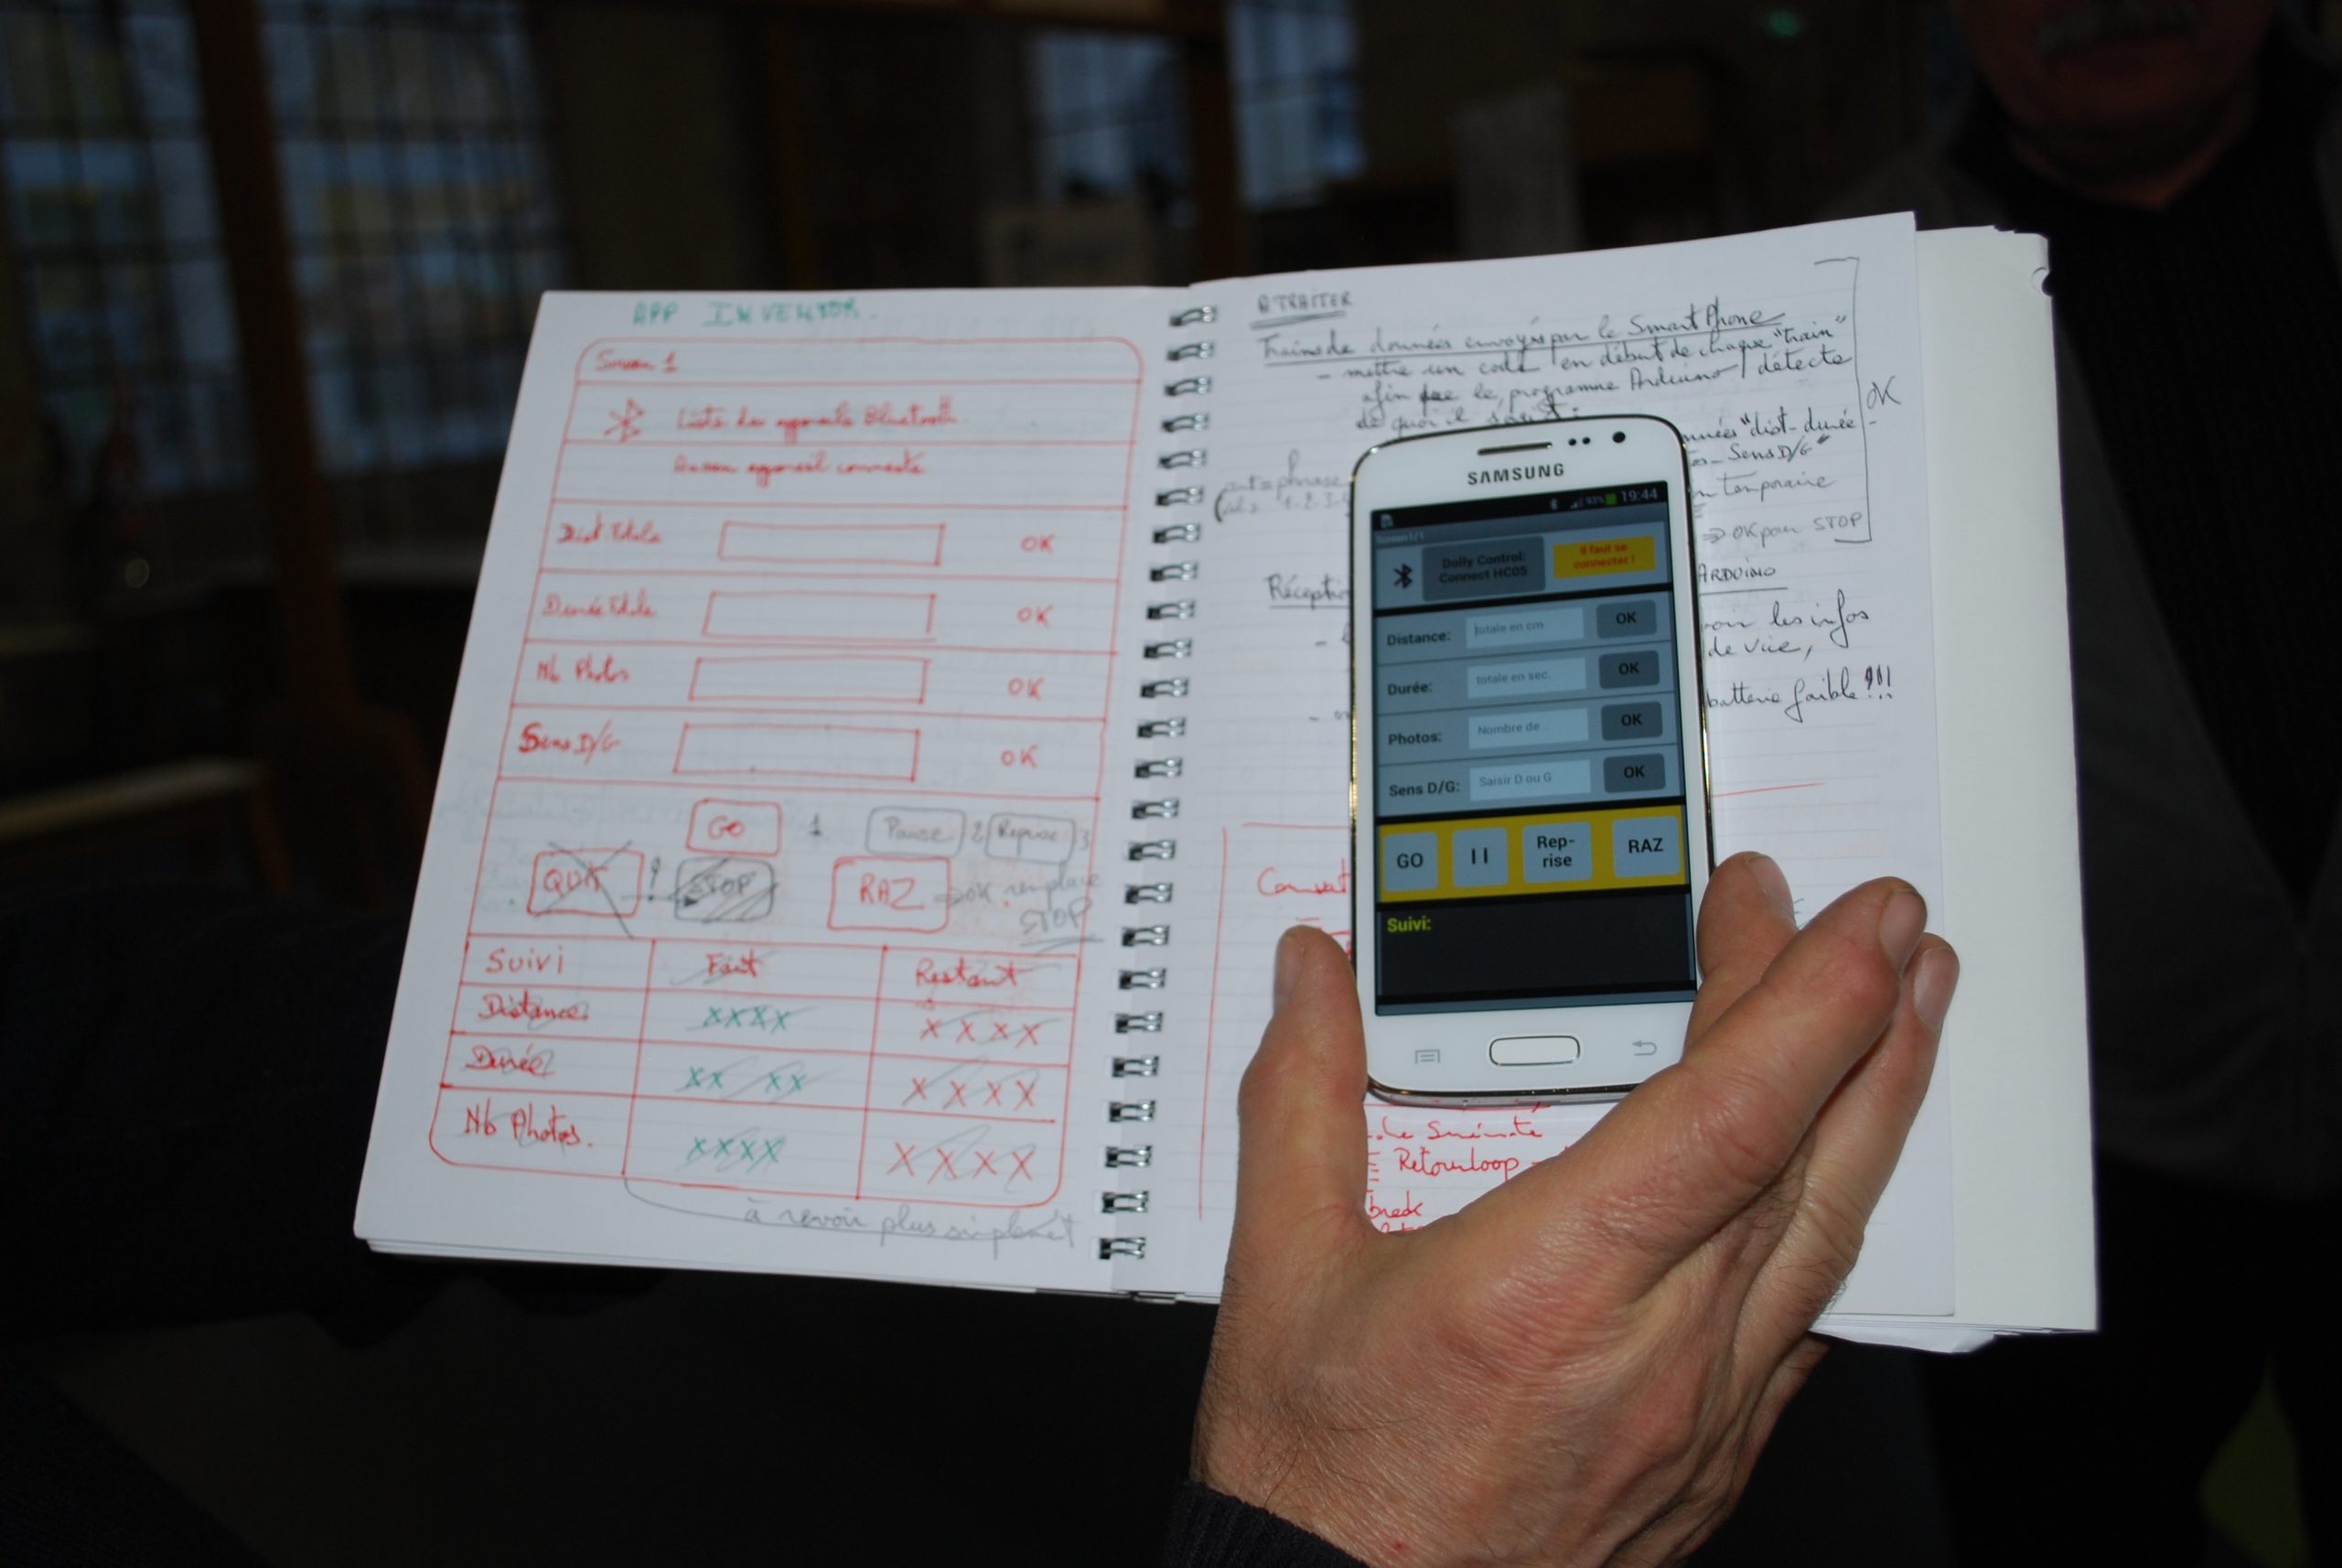 APP INVENTOR.
Screen 1
Liste des appareils Bluetooth.
Aucun appareil connecté
Dist. Totale OK
Durée Totale OK
Nb Photos OK
Sens D/G OK
GO 1 Pause 2 Reprise 3
QUIT ! STOP RAZ ⇒ OK remplace
STOP
Suivi Fait Restant
Distance. XXXX XXXX
Durée XX XX XXXX
Nb Photos. XXXX XXXX
à revoir plus simplement
A TRAITER
Trains de données envoyés par le SmartPhone
- mettre un code en début de chaque "train"
afin que le programme Arduino détecte
de quoi il s'agit.
"dist-durée-
Sens D/G"
OK
= phrase
temporaire
⇒ OK pour STOP
Réception
ARDUINO
les infos
de vue,
batterie faible !!!
Retour loop
break
SAMSUNG
93% 19:44
Screen1/1
Dolly Control:
Connect HC05
Il faut se
connecter !
Distance: totale en cm OK
Durée: totale en sec. OK
Photos: Nombre de... OK
Sens D/G: Saisir D ou G OK
GO II Rep-
rise RAZ
Suivi: